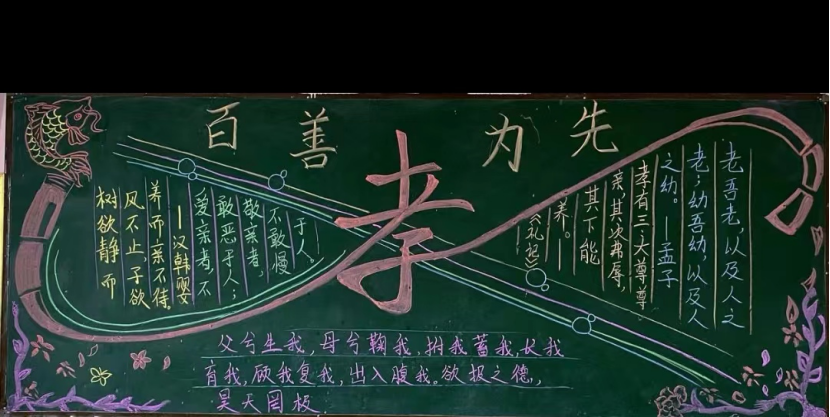 百善孝为先
树欲静而
风不止，子欲
养而亲不待。
—汉韩婴
爱亲者，不
敢恶于人；
敬亲者，
不敢慢
于人。
老吾老，以及人之
老；幼吾幼，以及人
之幼。—孟子
孝有三：大尊尊
亲，其次弗辱，
其下能
养。—
《礼记》
父兮生我，母兮鞠我，拊我蓄我，长我
育我，顾我复我，出入腹我。欲报之德，
昊天罔极